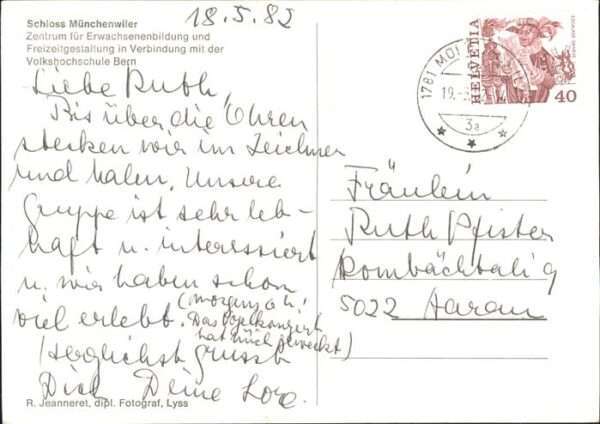 18.5.82
Schloss Münchenwiler
Zentrum für Erwachsenenbildung und
Freizeitgestaltung in Verbindung mit der
Volkshochschule Bern
Liebe Ruth,
Bis über die Ohren
stecken wir im Zeichnen
und malen. Unsere
Gruppe ist sehr leb-
haft u. interessiert
u. wir haben schon
viel erlebt. (morgens 4 h!
Das Vogelkonzert
hat mich geweckt)
Herzlichst grüsst
Dich Deine Lore.
R. Jeanneret, dipl. Fotograf, Lyss
HELVETIA
40
1781
19.
3a
Fräulein
Ruth Pfister
Rombachtäli 9
5022 Aarau